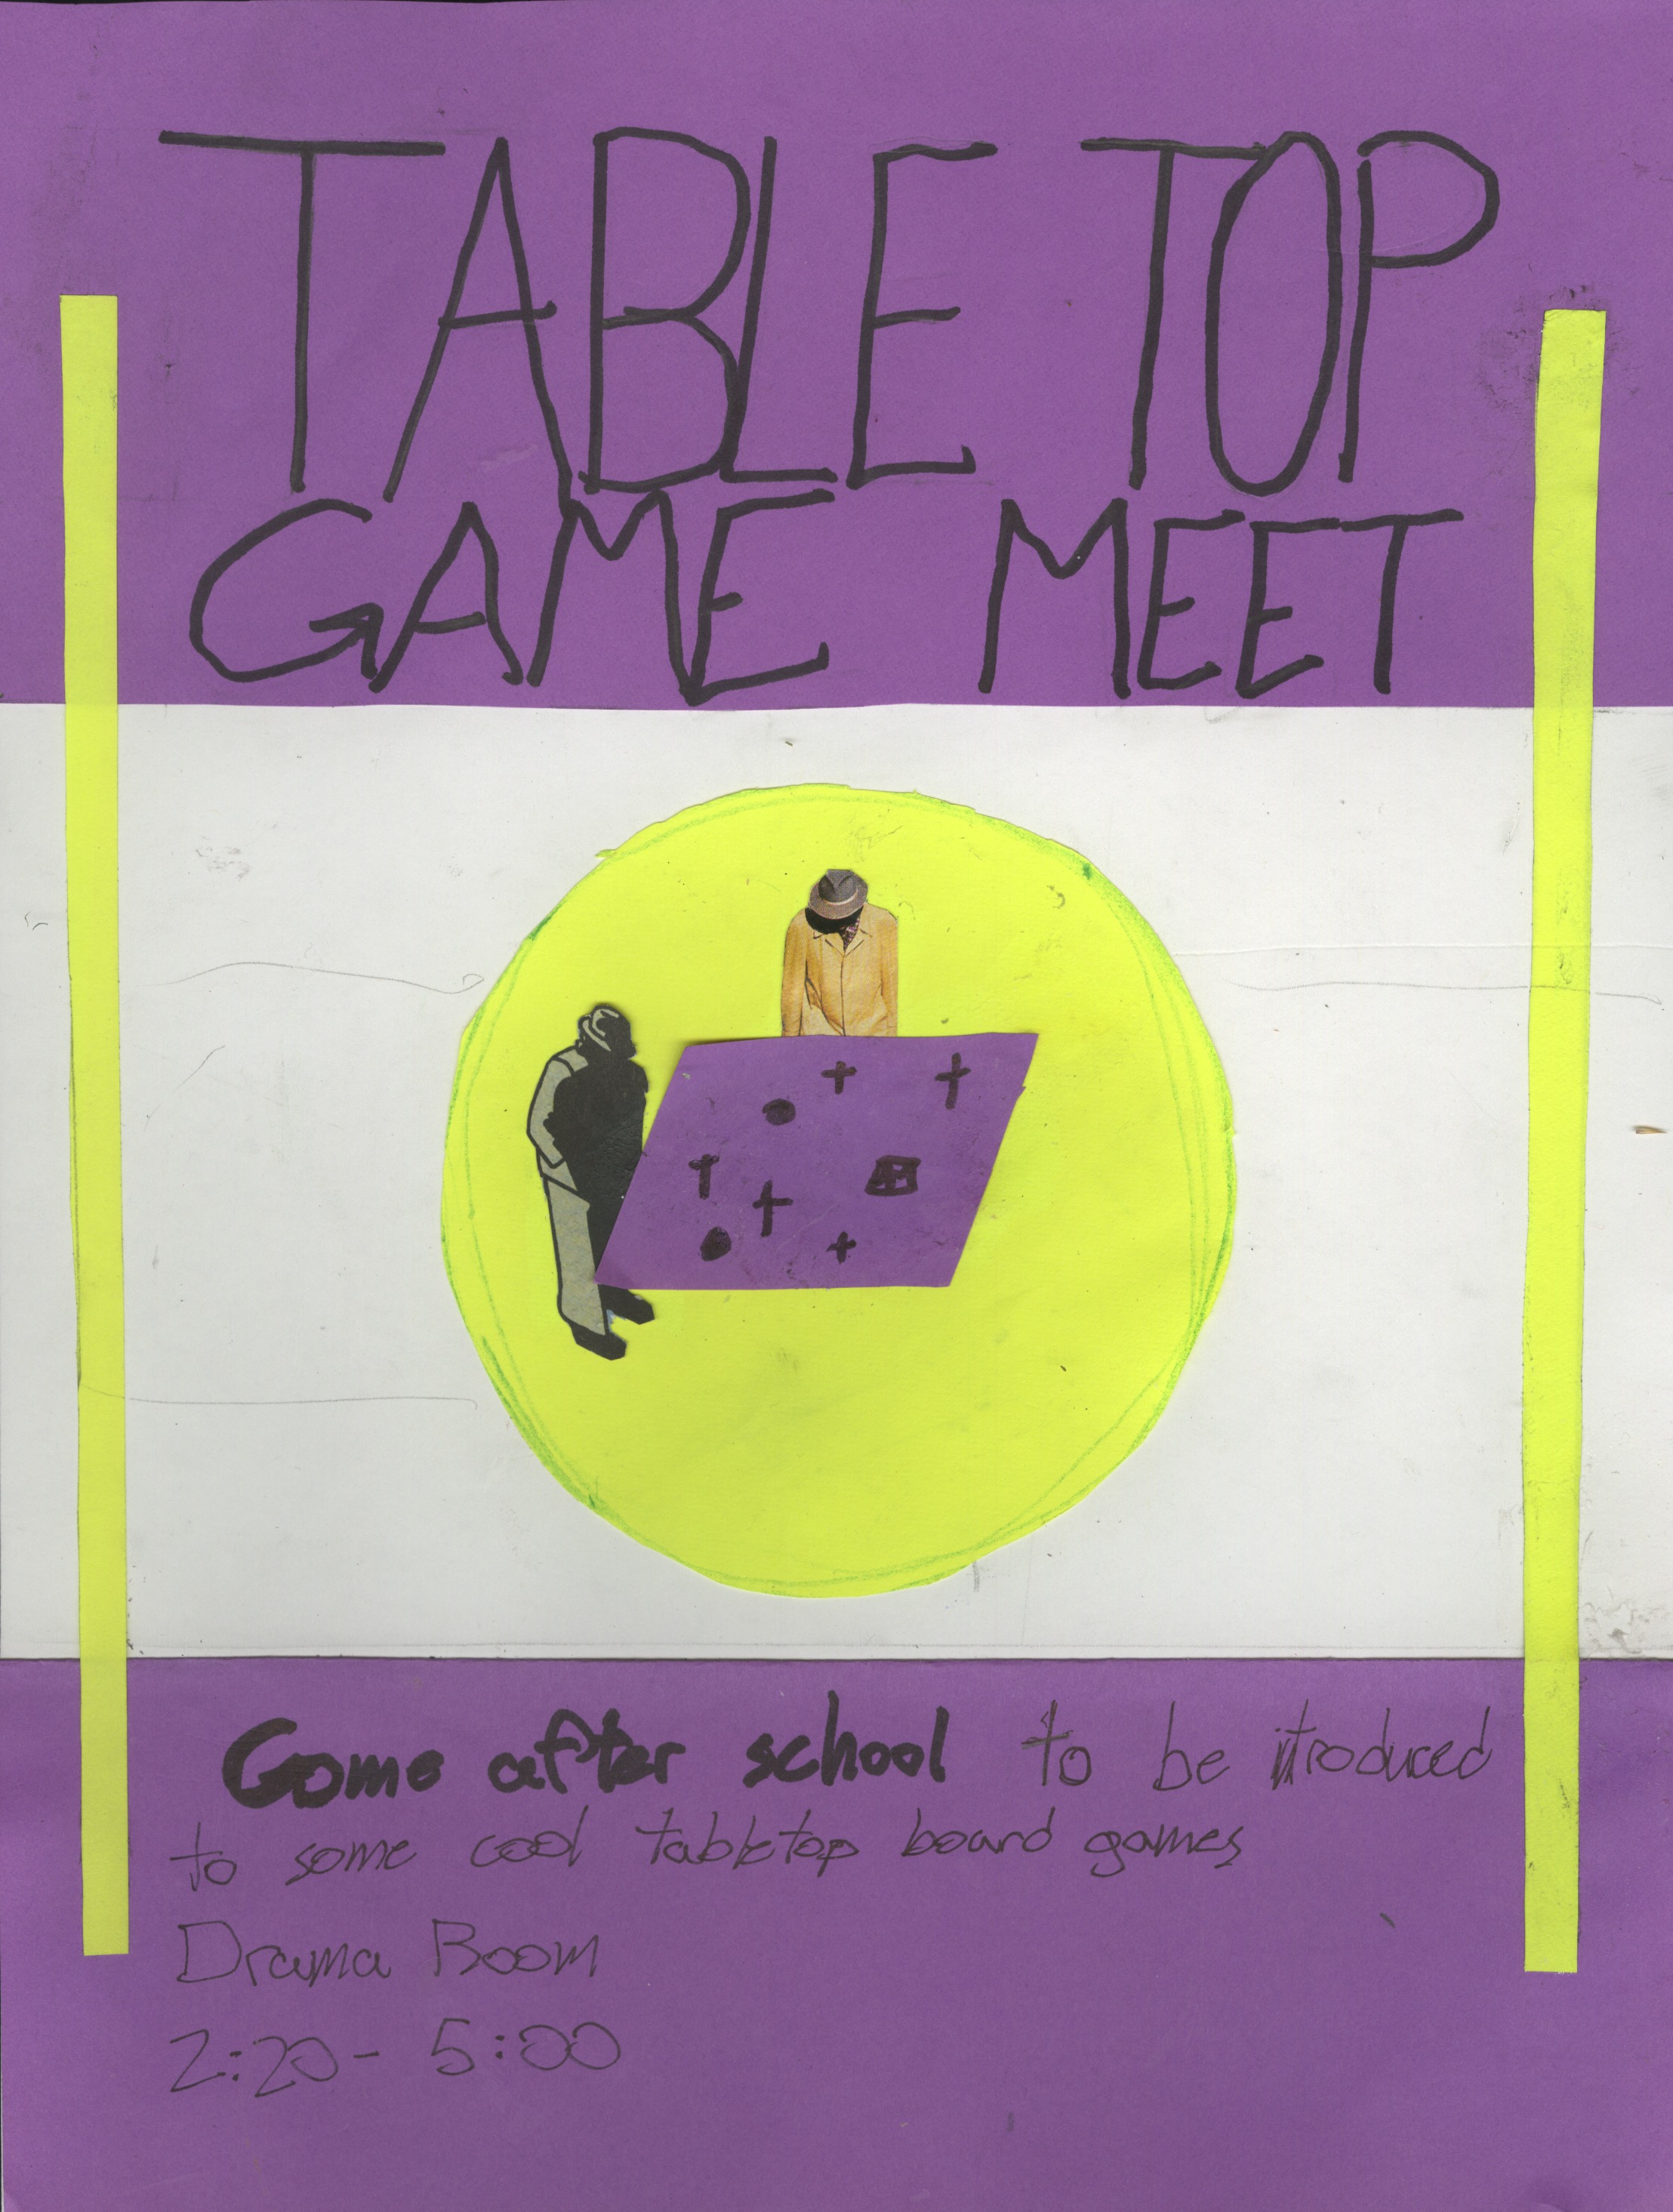 TABLE TOP
GAME MEET
Come after school to be introduced
to some cool tabletop board games
Drama Room
2:20 - 5:00